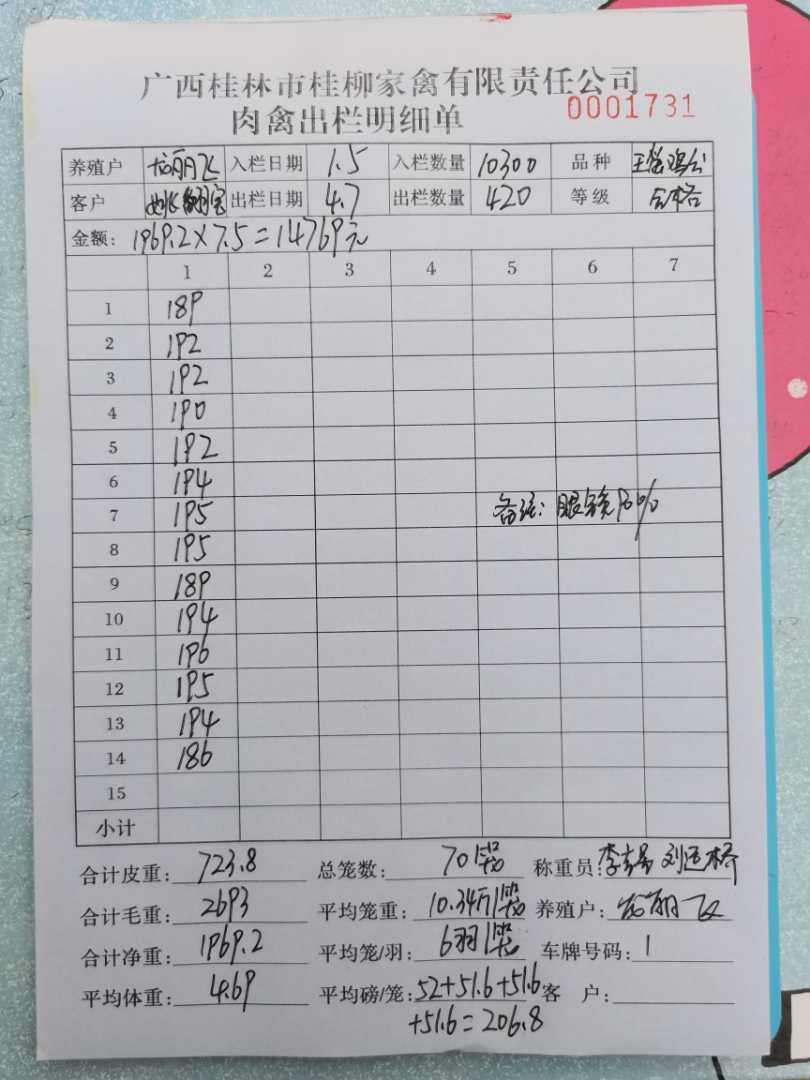 广西桂林市桂柳家禽有限责任公司
肉禽出栏明细单 0001731
养殖户 丽飞 入栏日期 1.5 入栏数量 10300 品种
客户 姚 出栏日期 4.7 出栏数量 420 等级 合格
金额: 1969.2×7.5=14769元
1 2 3 4 5 6 7
1 189
2 192
3 192
4 190
5 192
6 194
7 195 备注: 眼镜
8 195
9 189
10 194
11 196
12 195
13 194
14 186
15
小计
合计皮重: 723.8 总笼数: 70笼 称重员: 李 刘
合计毛重: 2693 平均笼重: 10.34斤/笼 养殖户: 丽飞
合计净重: 1969.2 平均笼/羽: 6羽/笼 车牌号码: 1
平均体重: 4.69 平均磅/笼: 52+51.6+51.6 客 户:
+51.6=206.8